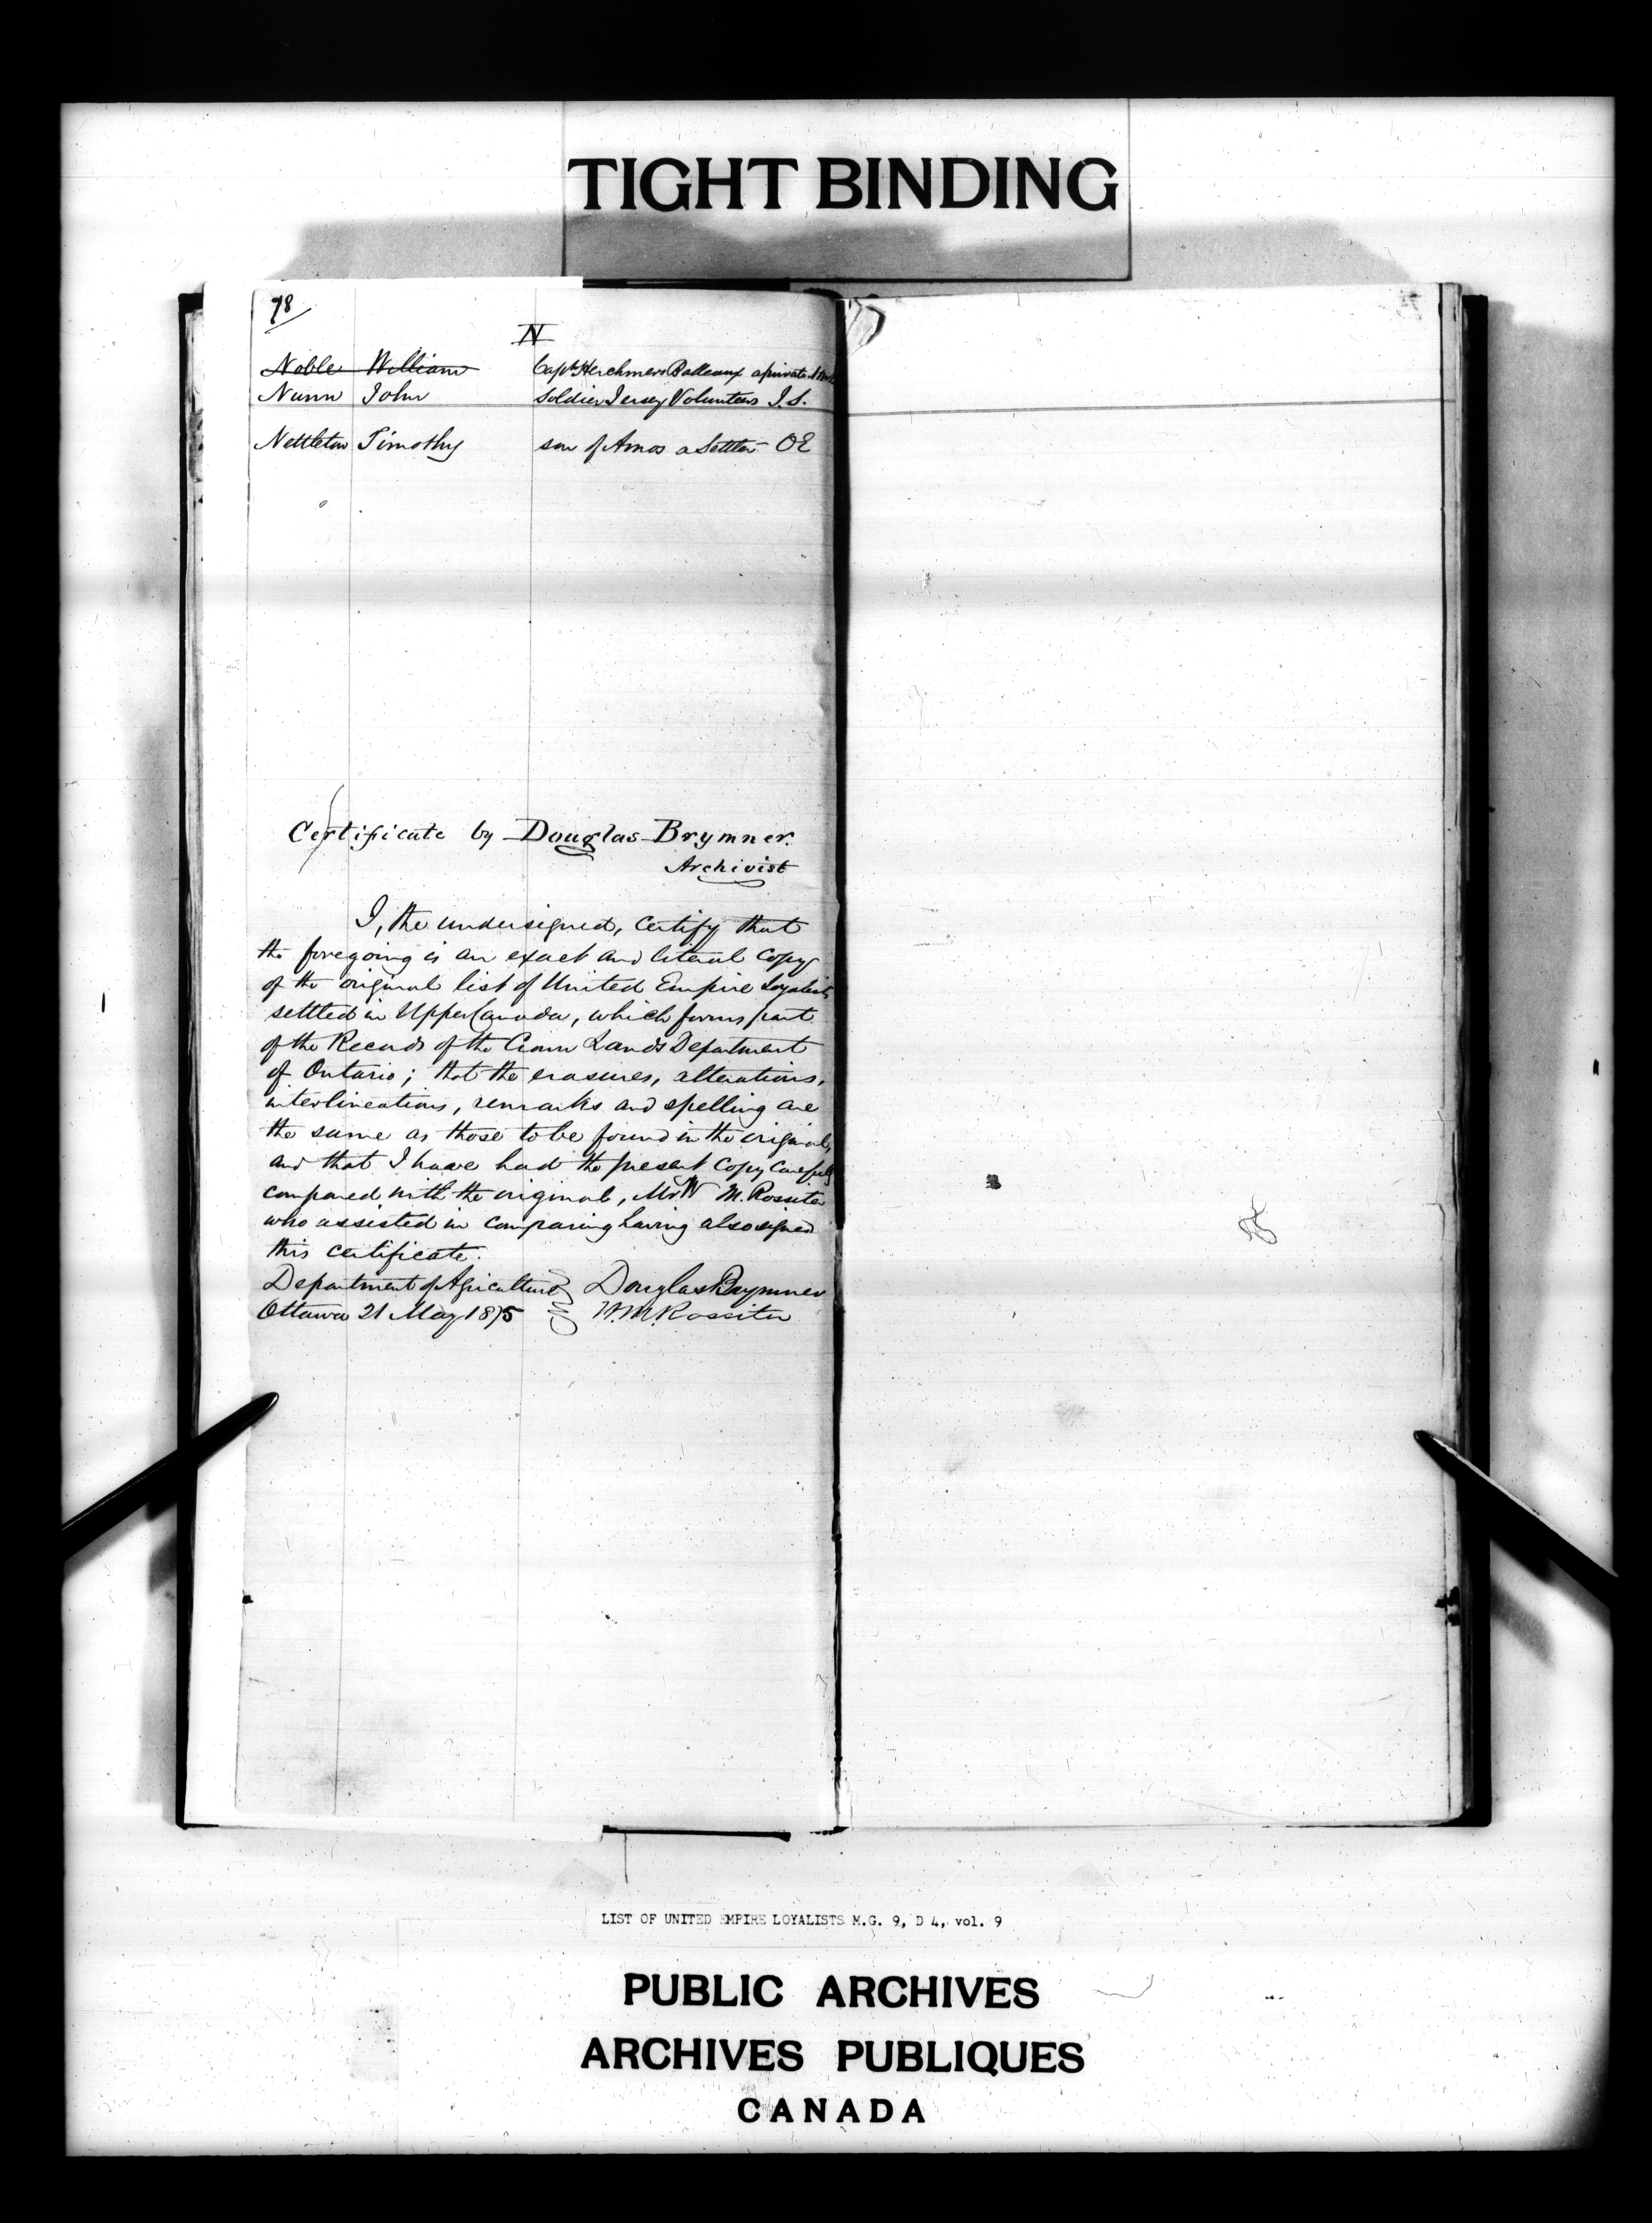 TIGHT BINDING
78
N
Noble William Capt Herchmers Batteaux a private
Nunn John Soldier Jersey Volunteers I.S.
Nettleton Timothy son of Amos a Settler OE
Certificate by Douglas Brymner.
Archivist
I, the undersigned, certify that
the foregoing is an exact and literal copy
of the original list of United Empire Loyalists
settled in Upper Canada, which forms part
of the Records of the Crown Lands Department
of Ontario; that the erasures, alterations,
interlineations, remarks and spelling are
the same as those to be found in the original,
and that I have had the present copy carefully
compared with the original, Mr W M. Rossiter
who assisted in comparing having also signed
this certificate.
Department of Agriculture Douglas Brymner
Ottawa 21 May 1875 W.M. Rossiter
LIST OF UNITED EMPIRE LOYALISTS M.G. 9, D 4, vol. 9
PUBLIC ARCHIVES
ARCHIVES PUBLIQUES
CANADA